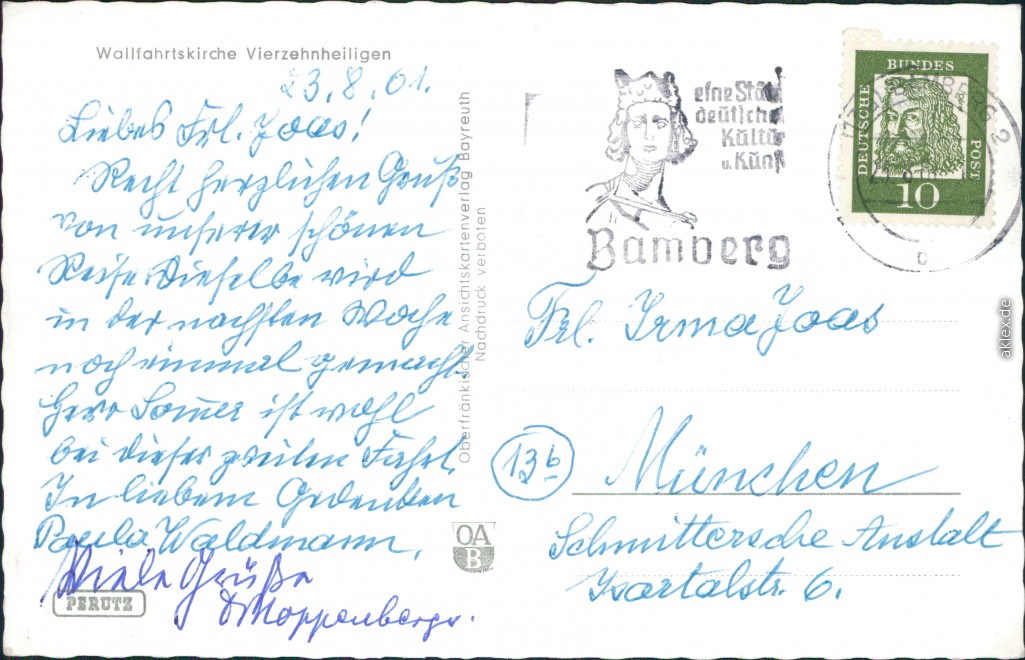 Wallfahrtskirche Vierzehnheiligen
23.8.61.
Liebes Frl. Joas!
Recht herzlichen Gruß
von unserer schönen
Reise. Dieselbe wird
in der nächsten Woche
noch einmal gemacht.
Herr ist wohl
bei dieser zweiten Fahrt.
In liebem Gedenken
Paula Waldmann.
Viele Grüße
PERUTZ
Oberfränkischer Ansichtskartenverlag Bayreuth
Nachdruck verboten
OA
B
eine Stät
deutscher
Kultur
u. Kunst
Bamberg
DEUTSCHE BUNDES POST
10
BAMBERG 2
b
Frl. Irma Joas
13b
München
Schmittersche Anstalt
Isartalstr. 6.
aklex.de